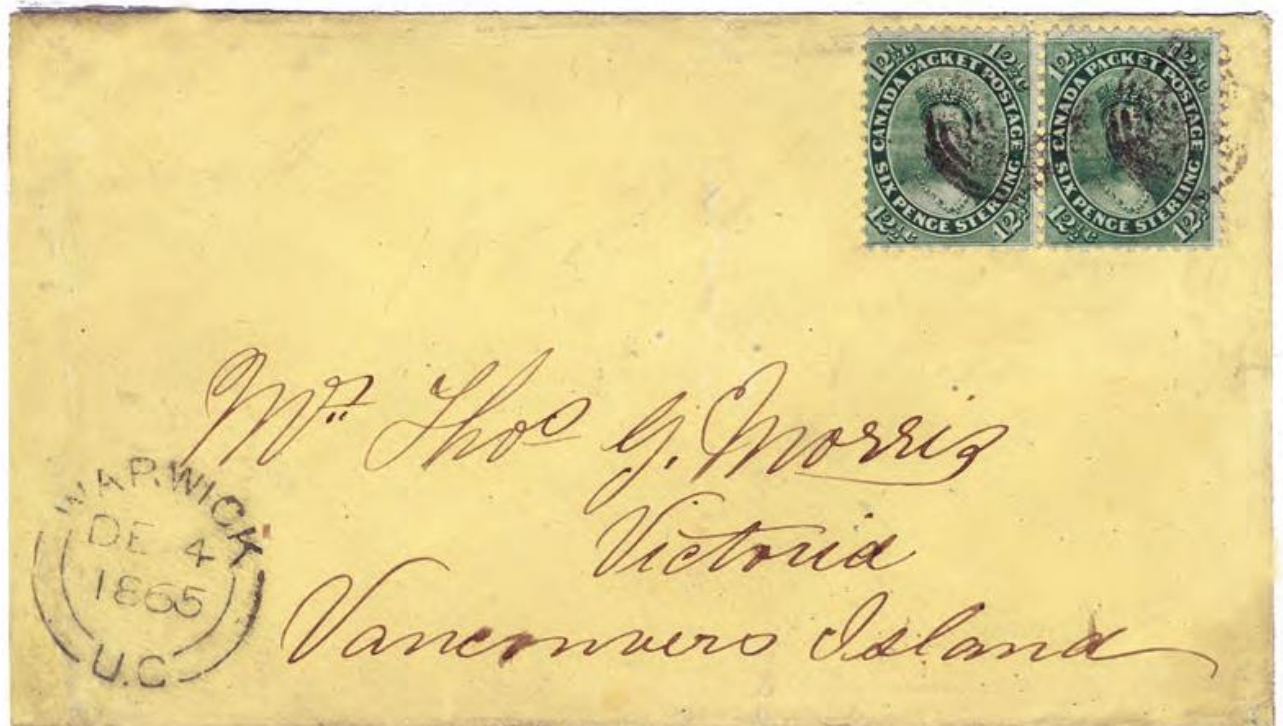 12½c 12½c
CANADA PACKET POSTAGE
SIX PENCE STERLING
12½c 12½c
12½c 12½c
CANADA PACKET POSTAGE
SIX PENCE STERLING
12½c 12½c
Mr. Thos G. Morris
Victoria
Vancouvers Island
WARWICK
DE 4
1865
U.C.